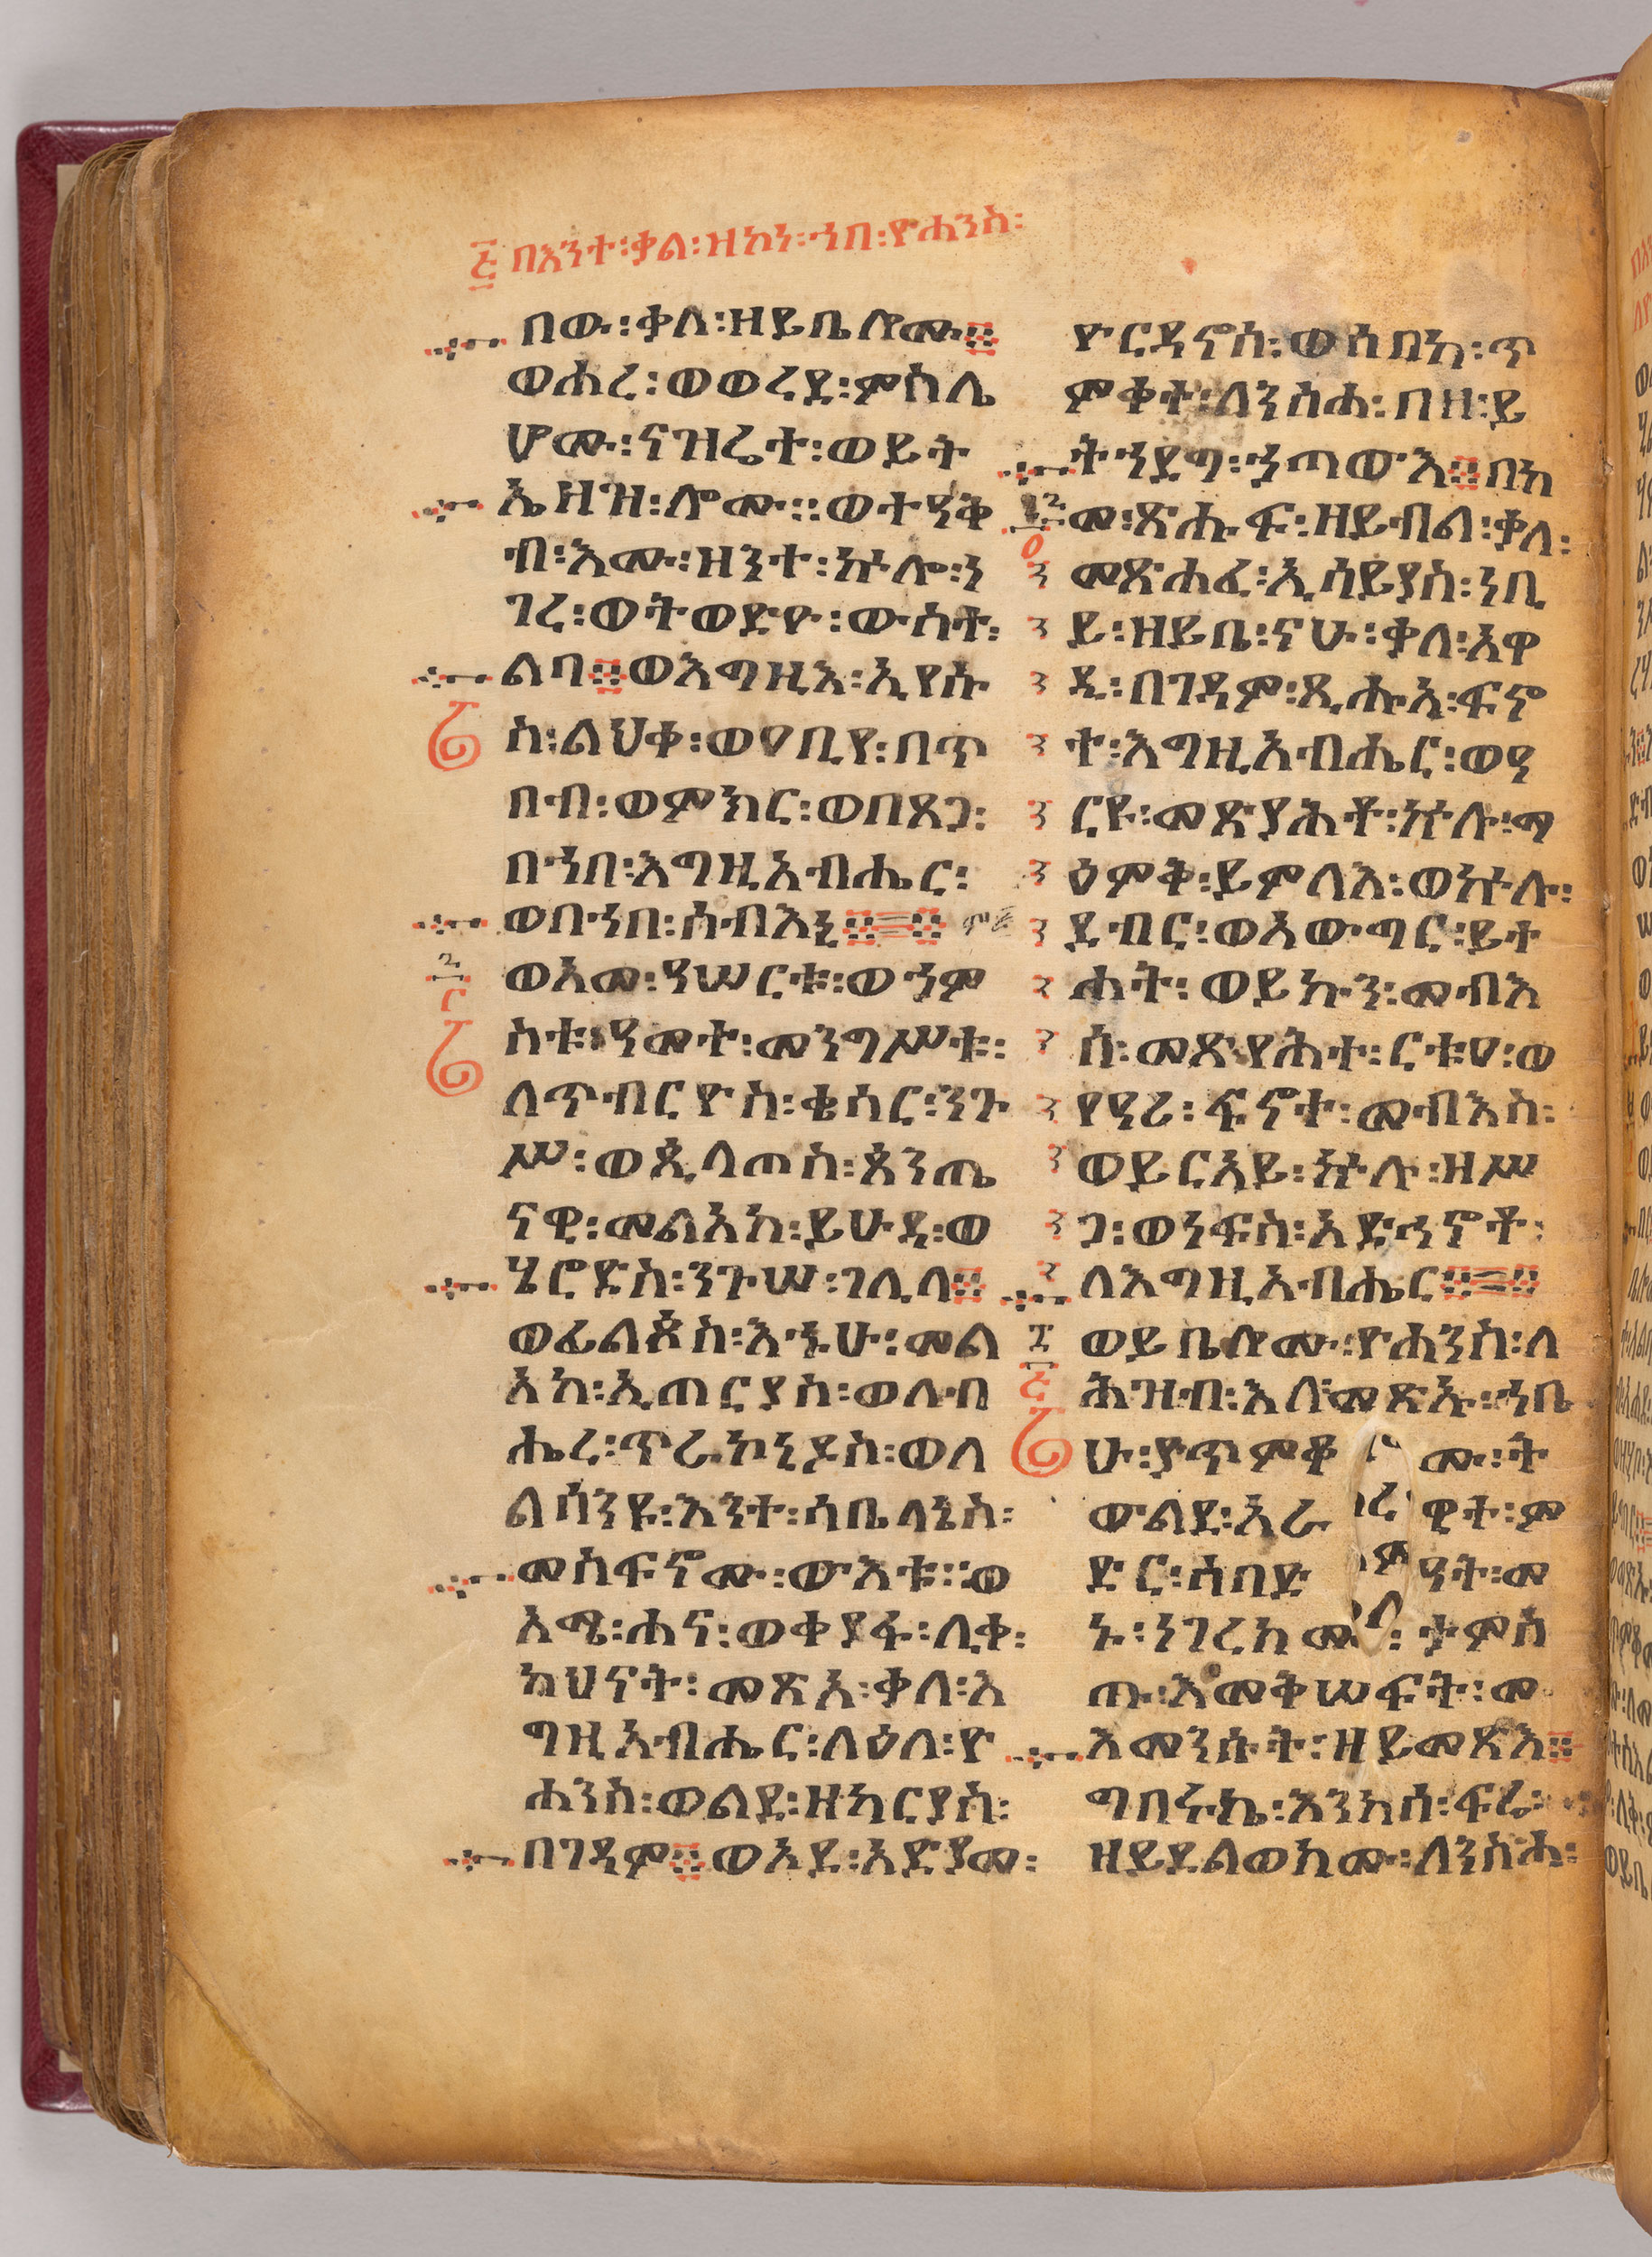 ፭ በእንተ፡ቃል፡ዘኮነ፡ኀበ፡ዮሐንስ፡
በው፡ቃለ፡ዘይቤሎሙ፨
ወሐረ፡ወወረደ፡ምስሌ
ሆሙ፡ናዝሬተ፡ወይት
ኤዘዝ፡ሎሙ፡፡ወተዓቅ
ብ፡እሙ፡ዘንተ፡ኵሎ፡ነ
ገረ፡ወትወድዮ፡ውስተ፡
ልባ፨ወእግዚእ፡ኢየሱ
ስ፡ልህቀ፡ወዐቢየ፡በጥ
በብ፡ወምክር፡ወበጸጋ፡
በኀበ፡እግዚአብሔር፡
ወበኀበ፡ሰብእኒ፨፨
ወአመ፡ዓሠርቱ፡ወኀም
ስቱ፡ዓመተ፡መንግሥቱ፡
ለጥብርዮስ፡ቄሳር፡ንጉ
ሥ፡ወጲላጦስ፡ጰንጤ
ናዊ፡መልአከ፡ይሁዳ፡ወ
ሄሮድስ፡ንጉሠ፡ገሊላ፨
ወፊልጶስ፡እኁሁ፡መል
አከ፡ኢጠርያስ፡ወለብ
ሔረ፡ጥራኮኒዶስ፡ወለ
ልሳንዩ፡እንተ፡ሳቤላኔስ፡
መስፍኖሙ፡ውእቱ፡፡ወ
አሜ፡ሐና፡ወቀያፋ፡ሊቀ፡
ካህናት፡መጽአ፡ቃለ፡እ
ግዚአብሔር፡ለዕለ፡ዮ
ሐንስ፡ወልደ፡ዘካርያስ፡
በገዳም፨ወአደ፡አድያመ፡
ዮርዳኖስ፡ወሰበከ፡ጥ
ምቀተ፡ለንስሐ፡በዘ፡ይ
ትኀደግ፡ኀጣውእ፨በከ
መ፡ጽሑፍ፡ዘይብል፡ቃለ፡
መጽሐፈ፡ኢሳይያስ፡ነቢ
ይ፡ዘይቤ፡ናሁ፡ቃለ፡አዋ
ዲ፡በገዳም፡ጺሑአ፡ፍኖ
ተ፡እግዚአብሔር፡ወዓ
ርዩ፡መጽያሕቶ፡ኵሉ፡ማ
ዕምቅ፡ይምላእ፡ወኵሉ፡
ደብር፡ወአውግር፡ይተ
ሐት፡ወይኩን፡መብእ
ስ፡መጽየሕተ፡ርቱዐ፡ወ
የዓሪ፡ፍኖተ፡መብእስ፡
ወይርአይ፡ኵሉ፡ዘሥ
ጋ፡ወነፍስ፡አድኅኖቶ፡
ለእግዚአብሔር፨፨
ወይቤሎሙ፡ዮሐንስ፡ለ
ሕዝብ፡እለ፡መጽኡ፡ኀቤ
ሁ፡ያጥምቆሙ፡ት
ውልደ፡አራዊተ፡ም
ድር፡ሰበድዓት፡መ
ኑ፡ነገረከሙ፡ታምስ
ጡ፡እመቅሠፍት፡መ
እመንሱት፡ዘይመጽእ፨
ግበሩኬ፡እንከሰ፡ፍሬ፡
ዘይደልወክሙ፡ለንስሐ፡